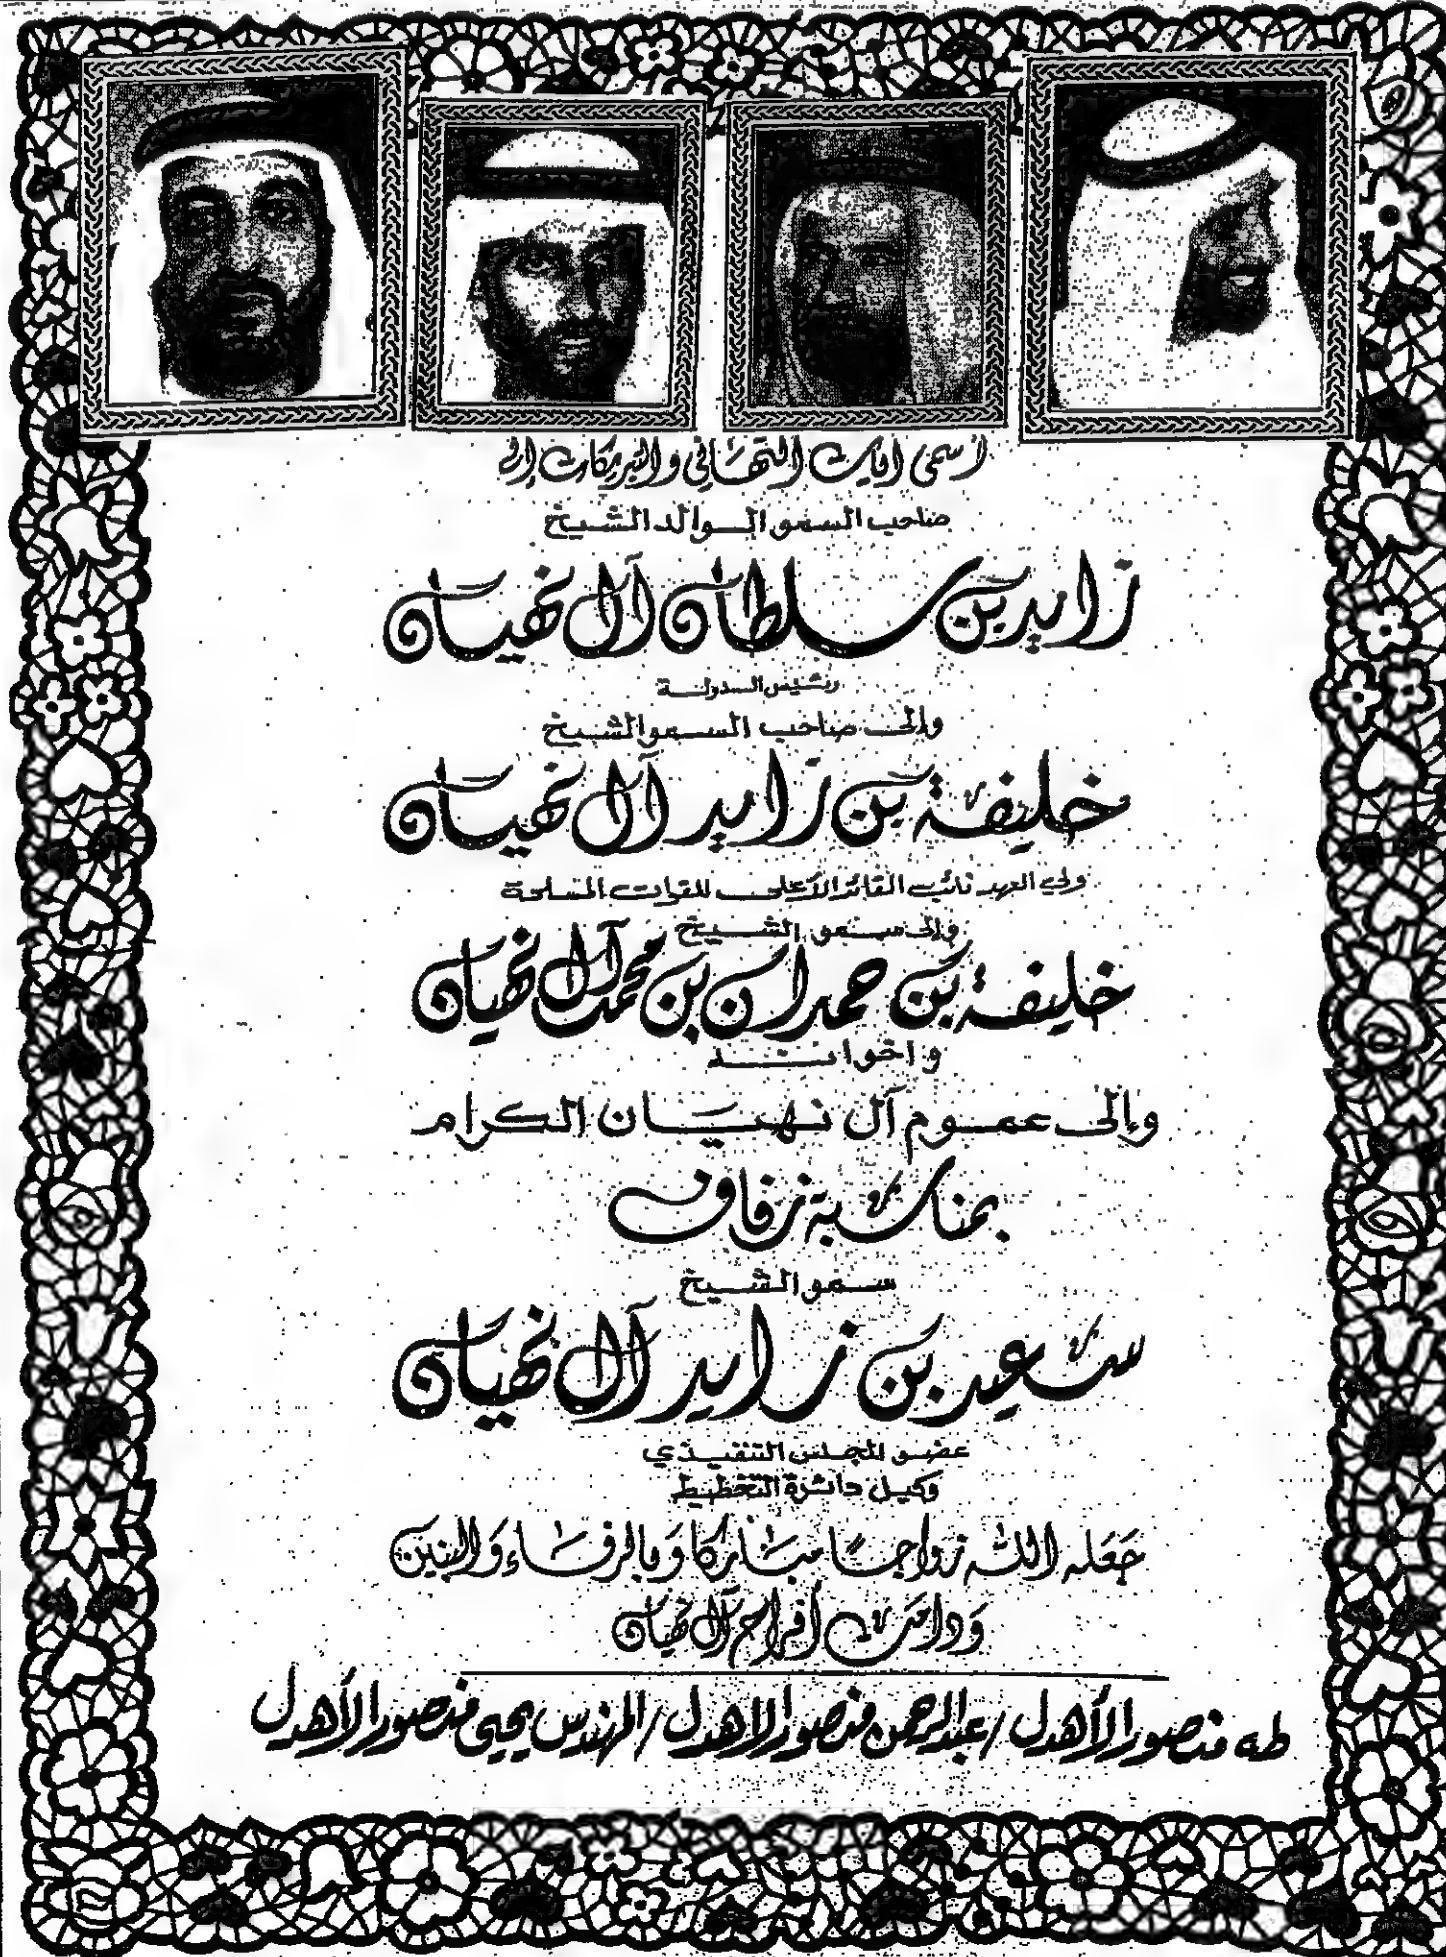 أسمى آيات التهاني والتبريكات إلى
صاحب السمو الوالد الشيخ
زايد بن سلطان آل نهيان
رئيس الدولة
وإلى صاحب السمو الشيخ
خليفة بن زايد آل نهيان
ولي العهد نائب القائد الأعلى للقوات المسلحة
وإلى سمو الشيخ
خليفة بن حمدان بن محمد آل نهيان
واخوانه
وإلى عموم آل نهيان الكرام
بمناسبة زفاف
سمو الشيخ
سعيد بن زايد آل نهيان
عضو المجلس التنفيذي
وكيل دائرة التخطيط
جَعَله الله زواجًا مبَاركا وَبالرفَاء وَالبنين
وَدامت أفراح آل نهيان
طه منصور الأهدل / عبدالرحمن منصور الاهدل / المهندس يحيى منصور الأهدل